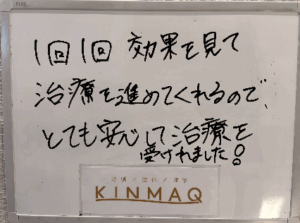 1回1回 効果を見て
治療を進めてくれるので、
とても安心して治療を
受けれました！
KINMAQ